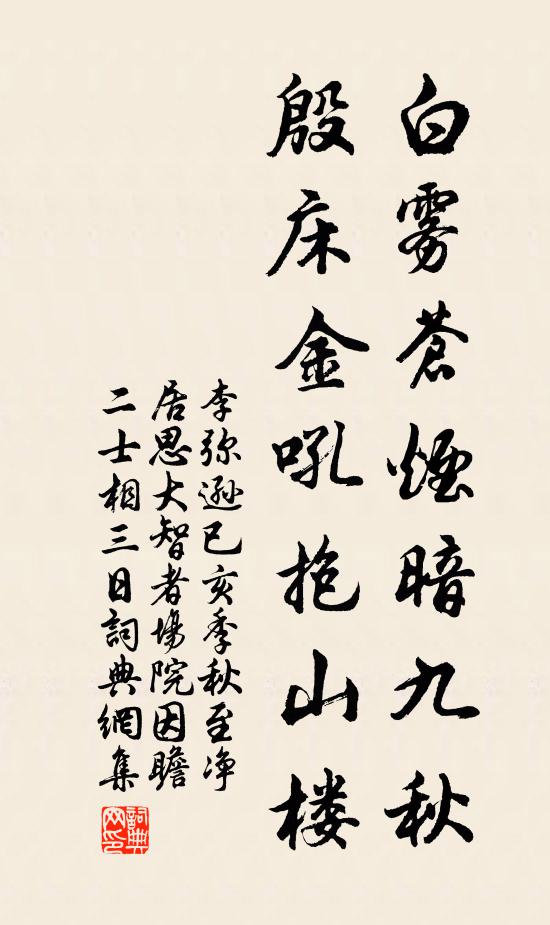 白雾苍煙暗九秋
殷床金吼抱山楼
李弥遜已亥季秋至净
居思大智者場院因瞻
二士相三日詞典網集
詞典
网印